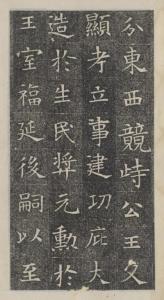 分東西競峙公王父
顯考立事建功庇大
造於生民奬元勳於
王室福延後嗣以至